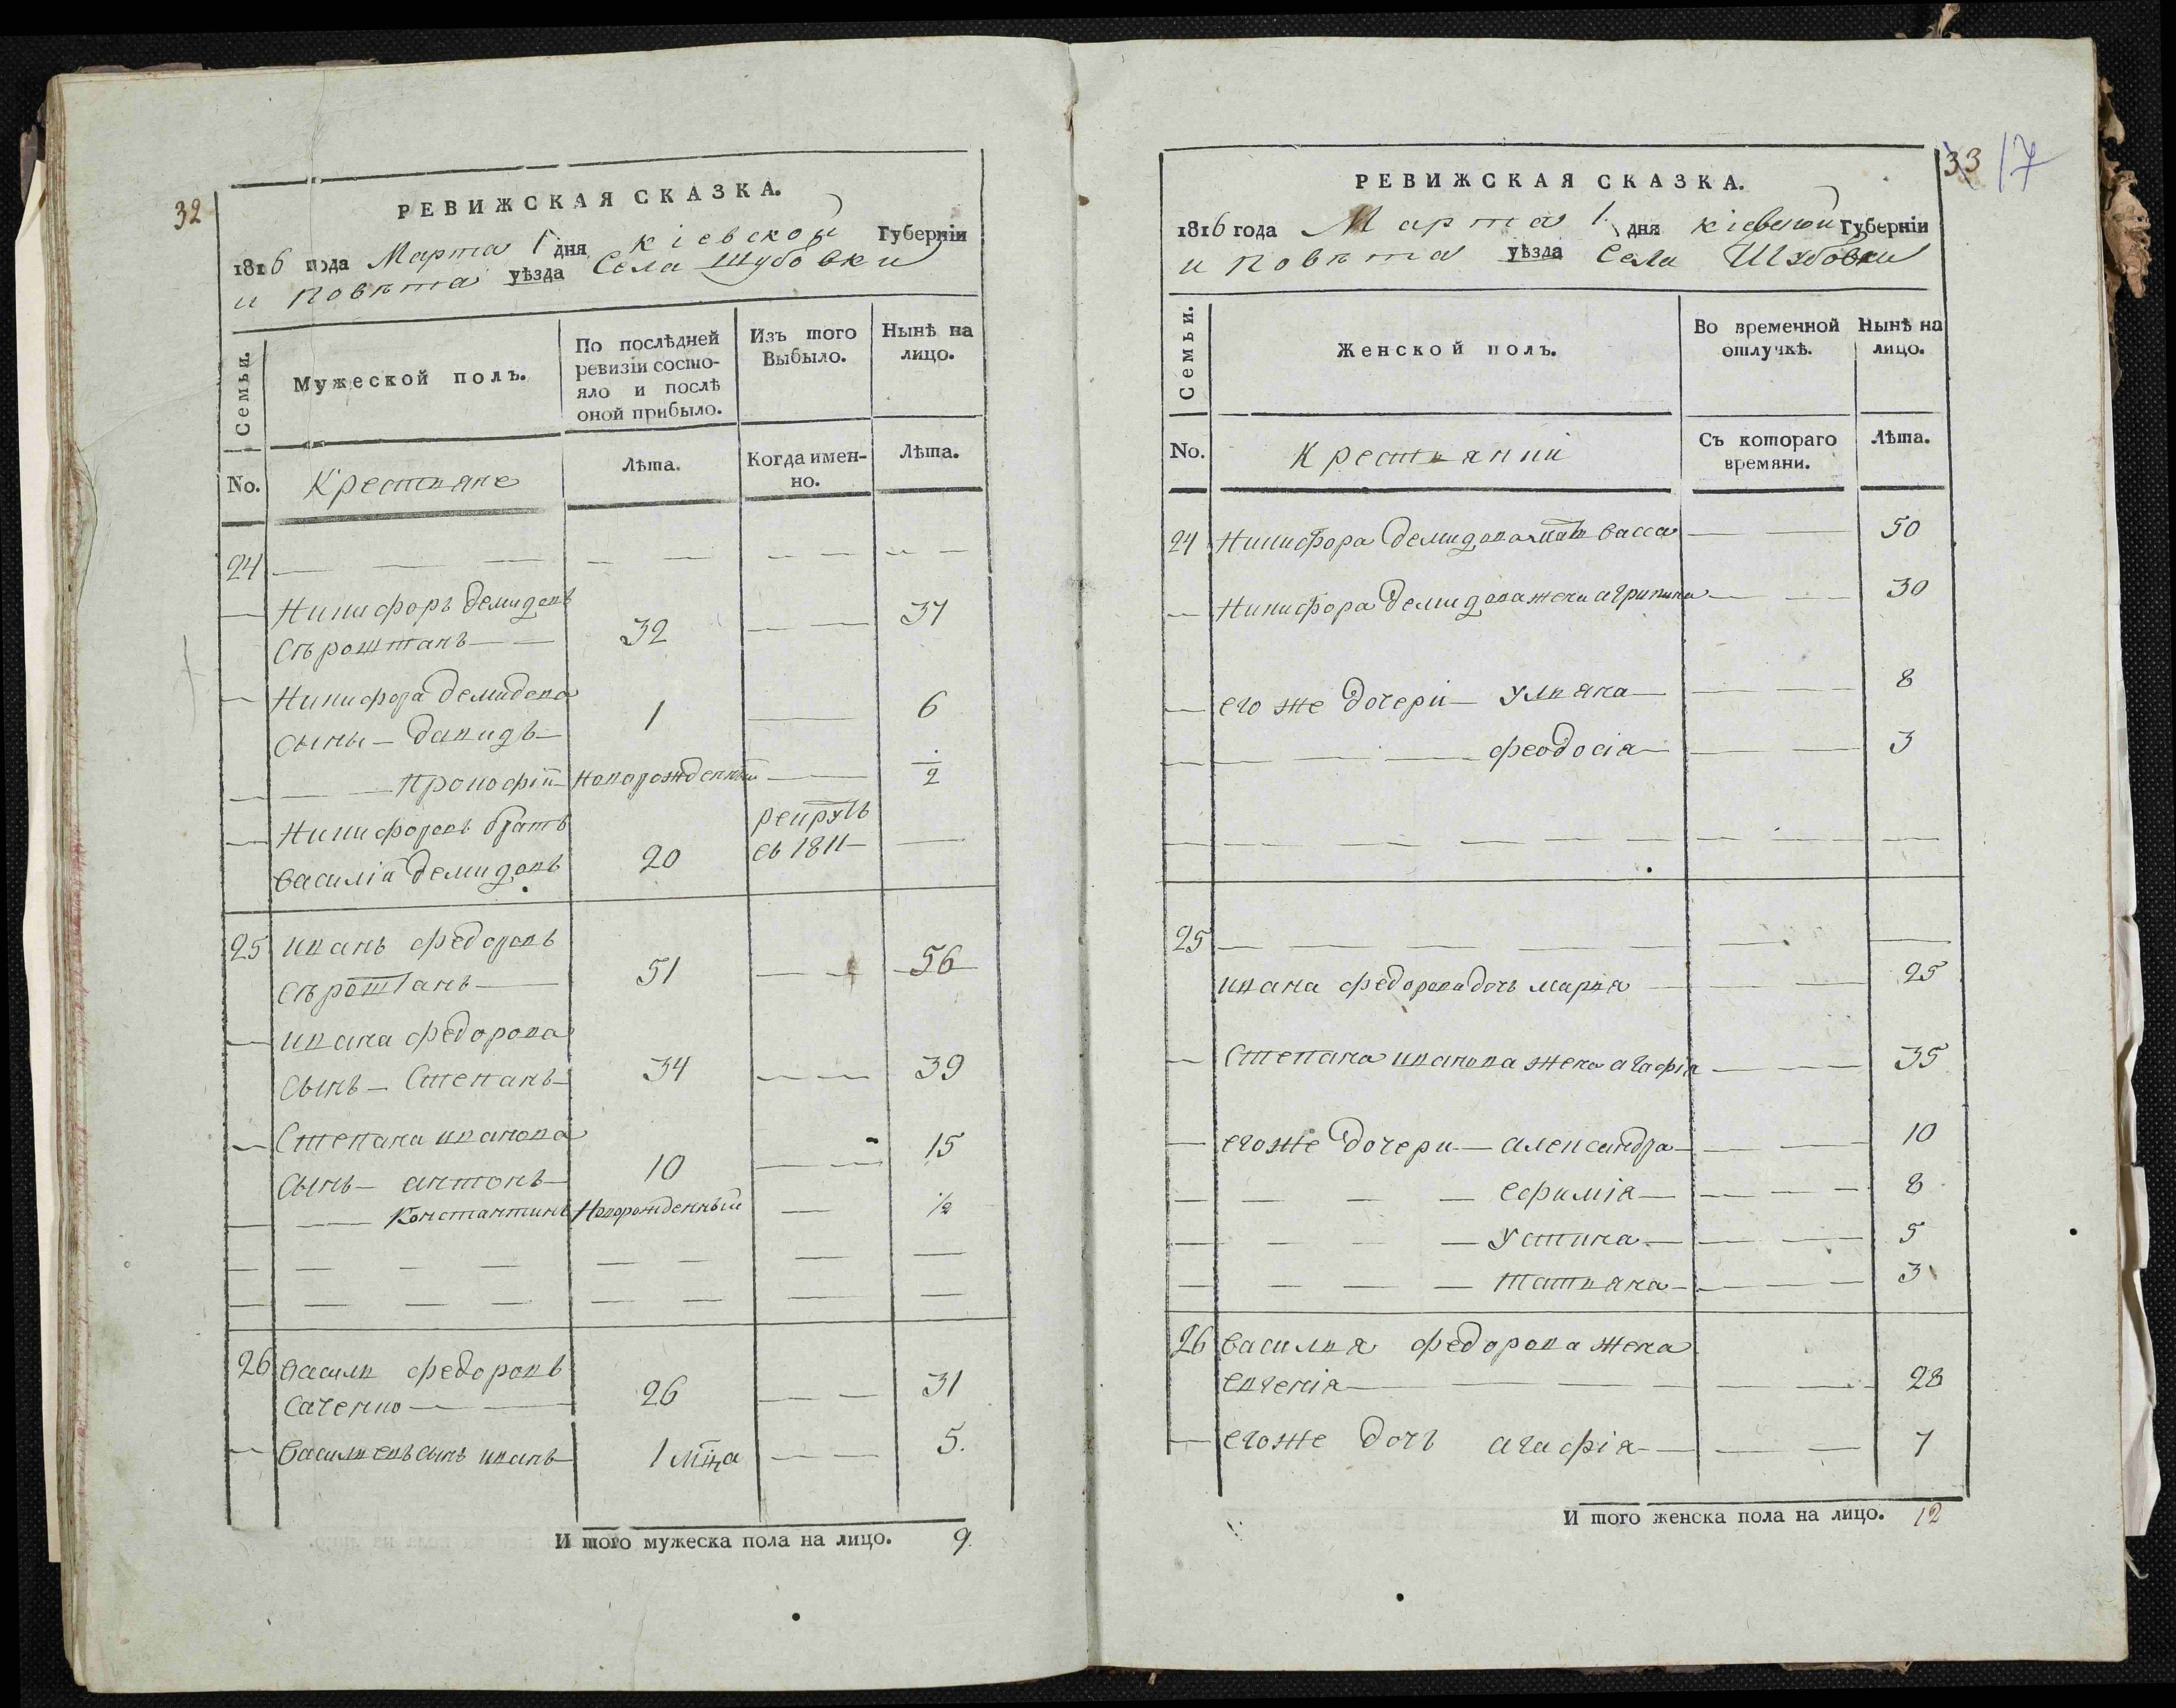 32
РЕВИЖСКАЯ СКАЗКА.
1816 года Марта 1 дня кіевской Губерніи
и повѣта уѣзда Села Шубовки
Семьи.
Мужеской полъ.
По послѣдней ревизіи состояло и послѣ оной прибыло.
Изъ того Выбыло.
Нынѣ на лицо.
No.
Крестьяне
Лѣта.
Когда именно.
Лѣта.
24 — — — — — — — —
— Никифоръ демидовъ
Сѣроштанъ — — 32 — — 37
— Никифора демидова
сынъ — давидъ — 1 — 6
— — Прокофій новорожденный — 1/2
— Никифоровъ братъ рекрутъ
василій демидовъ 20 въ 1811 — —
25 иванъ федоровъ
сѣроштанъ — 51 — — 56
— ивана федорова
сынъ — Степанъ — 34 — — 39
— Степана иванова
сынъ — антонъ — 10 — — 15
— — Константинъ Новорожденный — 1/2
— — — — — — — —
— — — — — — — —
26 василь федоровъ
саченко — — 26 — — 31
— василіевъ сынъ иванъ 1 мца — — 5.
И того мужеска пола на лицо. 9.
33 17
РЕВИЖСКАЯ СКАЗКА.
1816 года Марта 1 дня кіевской Губерніи
и повѣта уѣзда Села Шубовки
Семьи.
Женской полъ.
Во временной отлучкѣ.
Нынѣ на лицо.
No.
Крестьянки
Съ котораго времяни.
Лѣта.
24 Никифора демидова мать васса — — 50
— Никифора демидова жена агрипина — — 30
— его же дочери — ульяна — — — 8
— — — — феодосія — — — 3
— — — — — — — — —
25 — — — — — — —
ивана федорова дочь марья — — — 25
— Степана иванова жена агафія — — 35
— егоже дочери — александра — — — 10
— — — — ефимія — — — — 8
— — — — устина — — — — 5
— — — — татьяна — — — — 3
26 василья федорова жена
евгенія — — — — — 28
— егоже дочь агафія — — — 7
И того женска пола на лицо. 12